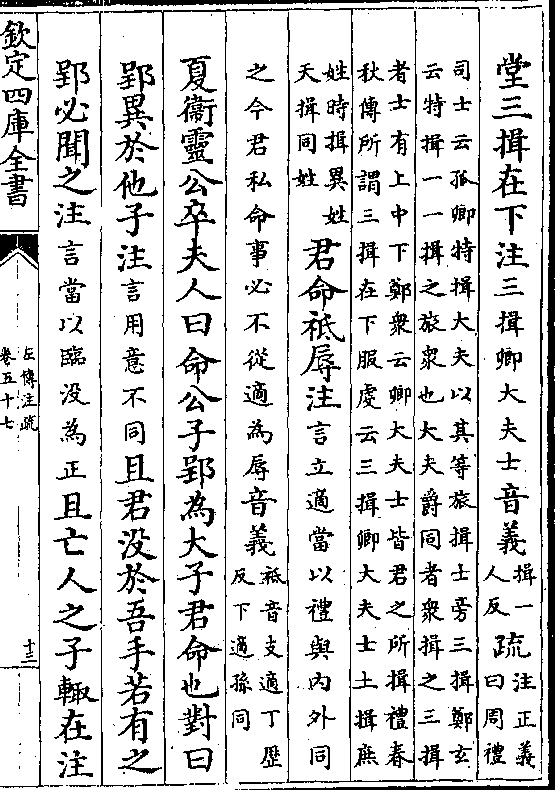 堂三揖在下注三揖卿大夫士音義揖一人反疏注正義曰周禮
司士云孤卿特揖大夫以其等旅揖士旁三揖鄭玄
云特揖一一揖之旅衆也大夫爵同者衆揖之三揖
者士有上中下鄭衆云卿大夫士皆君之所揖禮春
秋傳所謂三揖在下服虔云三揖卿大夫士土揖庶
姓時揖異姓天揖同姓君命祗辱注言立適當以禮與內外同
之今君私命事必不從適為辱音義祗音支適丁歷反下適孫同
夏衛靈公卒夫人曰命公子郢為大子君命也對曰
郢異於他子注言用意不同且君沒於吾手若有之
郢必聞之注言當以臨沒為正且亡人之子輒在注
欽定四庫全書
左傳注疏
卷五十七
十三